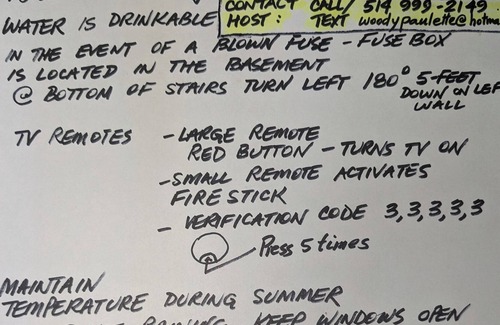 CONTACT CALL/ 514 999-2149
WATER IS DRINKABLE
HOST: TEXT woodypaulette@hotma
IN THE EVENT OF A BLOWN FUSE - FUSE BOX
IS LOCATED IN THE BASEMENT
@ BOTTOM OF STAIRS TURN LEFT 180° 5-FEET
DOWN ON LEF
WALL
TV REMOTES - LARGE REMOTE
RED BUTTON - TURNS TV ON
- SMALL REMOTE ACTIVATES
FIRESTICK
- VERIFICATION CODE 3,3,3,3,3
Press 5 times
MAINTAIN
TEMPERATURE DURING SUMMER
RAINING, KEEP WINDOWS OPEN